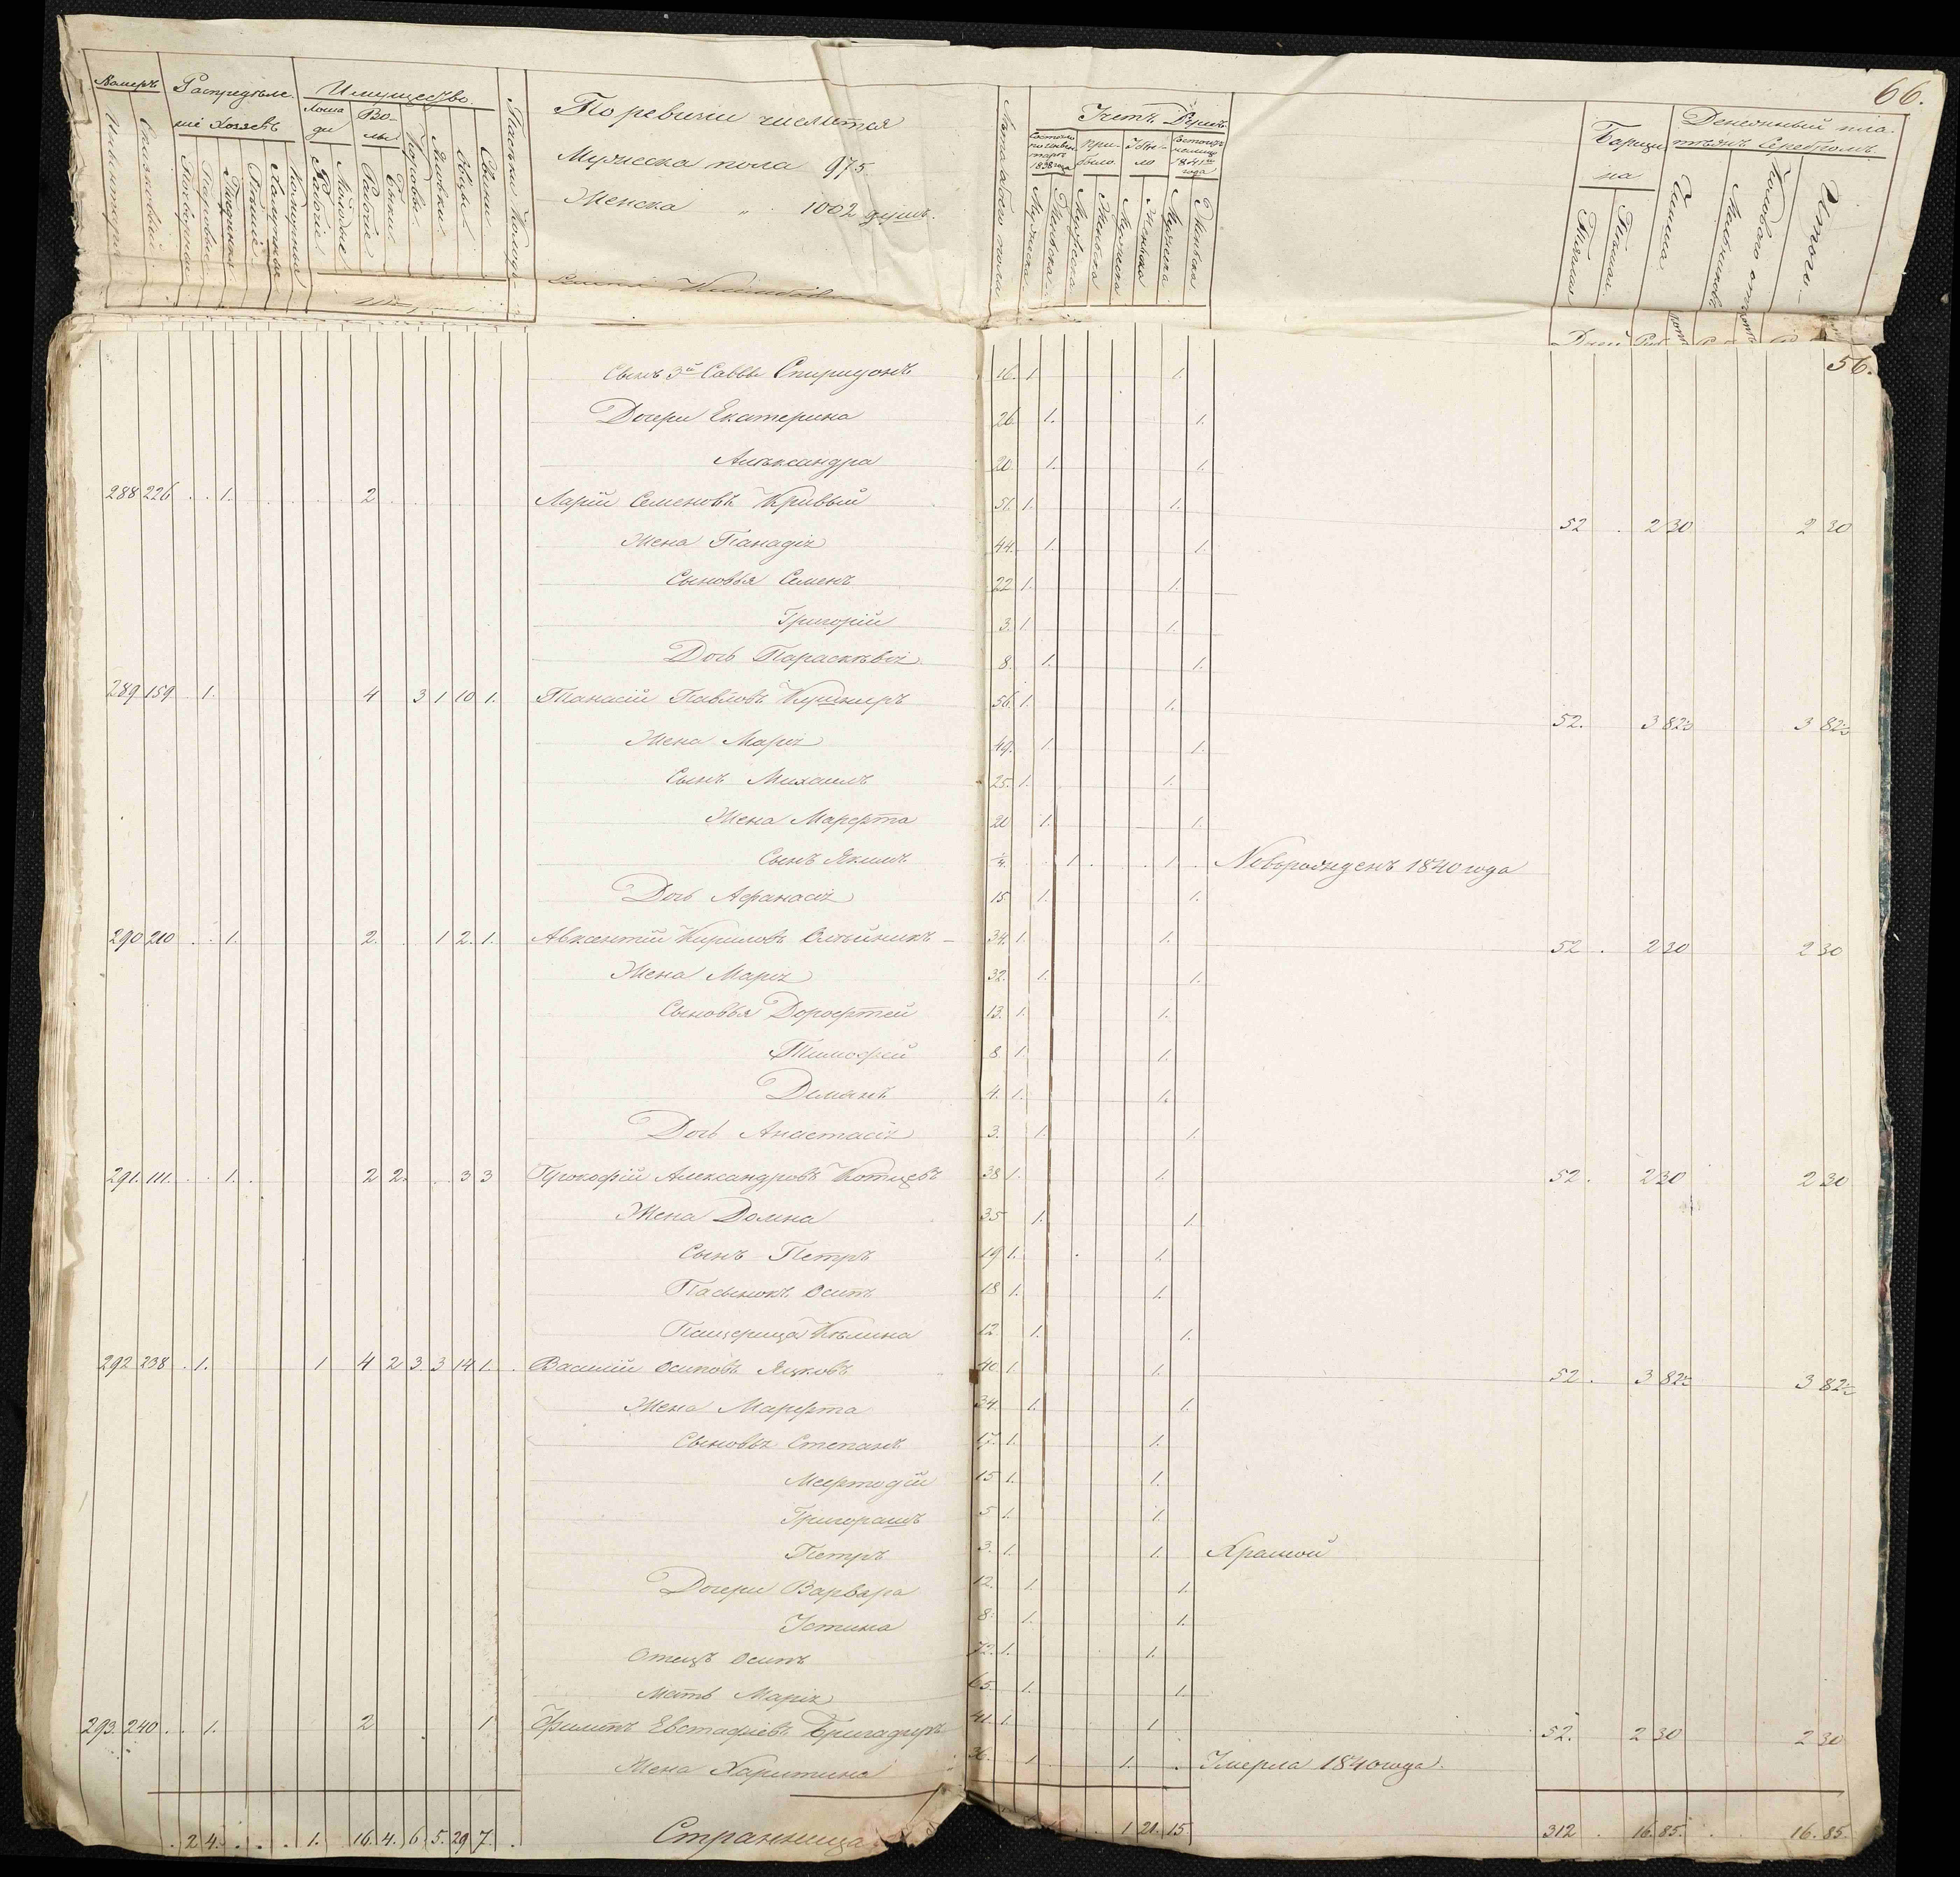 66.
Номеръ
Инвентаря
Распредѣле-
ніе Хозяевъ
Имущество
Лоша
ди
Во-
лы
Рабочіе
Молодые
Рабочіе
Бычки
Коровы
Яловки
Овцы
Свиньи
По ревизіи числится
Мужеска пола 975.
Женска " 1002 душъ.
Лѣта обоего пола
Учетъ Душъ
Состояло
по инвен-
тарю
1838 года
При-
было
Убы-
ло
Состоитъ
налицо
1841го
года
Мужеска
Женска
Мужеска
Женска
Мужеска
Женска
Мужеска
Женска
Барщи
на
Тяглая
Пѣшая
Денежный пла-
тежъ Серебромъ
Чинша
Итого
56.
Сынъ 3й Саввы Спиридонъ 16. 1. 1.
Дочери Екатерина 26. 1. 1.
Александра 20. 1. 1.
288 226 . . 1. 2 Ларій Семеновъ Кривый 51. 1. 1. 52 . 2 30 2 30
Жена Панадія 44. 1. 1.
Сыновья Семенъ 22 1. 1.
Григорій 3. 1. 1.
Дочь Параскѣвія 8. 1. 1.
289 159 . 1. 4 3 1 10 1. Танасій Павловъ Кушниръ 56. 1. 1. 52. 3 82½ 3 82½
Жена Марія 49. 1. 1.
Сынъ Михаилъ 25. 1. 1.
Жена Марфта 20 1. 1.
Сынъ Якимъ 1 1 Новорожденъ 1840 года
Дочь Афанасія 15 1. 1.
290 210 . . 1. 2. 1 2. 1. Авксентій Кириловъ Олѣйникъ 34. 1. 1. 52 . 2 30 2 30
Жена Марія 32. 1. 1.
Сыновья Дорофтей 13. 1. 1.
Тимофей 8 1. 1.
Демянъ 4. 1. 1.
Дочь Анастасія 3. 1. 1.
291. 111. . . 1. . 2 2. 3 3 Прокофій Александровъ Котцевъ 38 1. 1. 52 . 2 30 2 30
Жена Домна 35 1. 1.
Сынъ Петръ 19 1. 1.
Пасынокъ Осипъ 18 1. 1.
Падщерица Кѣлина 12. 1. 1.
292 238 . 1. 1 4 2 3 3 14 1. Василій Осиповъ Яцковъ 40. 1. 1. 52 . 3 82½ 3 82½
Жена Марфта 34. 1. 1.
Сыновья Степанъ 17. 1. 1.
Мефтодій 15 1. 1.
Григорашъ 5 1. 1.
Петръ 3. 1. 1. Хромой
Дочери Варвара 12. 1. 1.
Устина 8. 1. 1.
Отецъ Осипъ 72. 1. 1.
Мать Марія 65. 1. 1.
293. 240 . . 1. 2 1 Филипъ Евстафіевъ Бригадиръ 41. 1. 1 52. 2 30 2 30
Жена Харитина 36. 1 1. Умерла 1840 года.
. 2 4. . . . 1. 16 4. 6. 5. 29 7. . Страница 1 21. 15 312 . 16. 85. . . 16. 85.